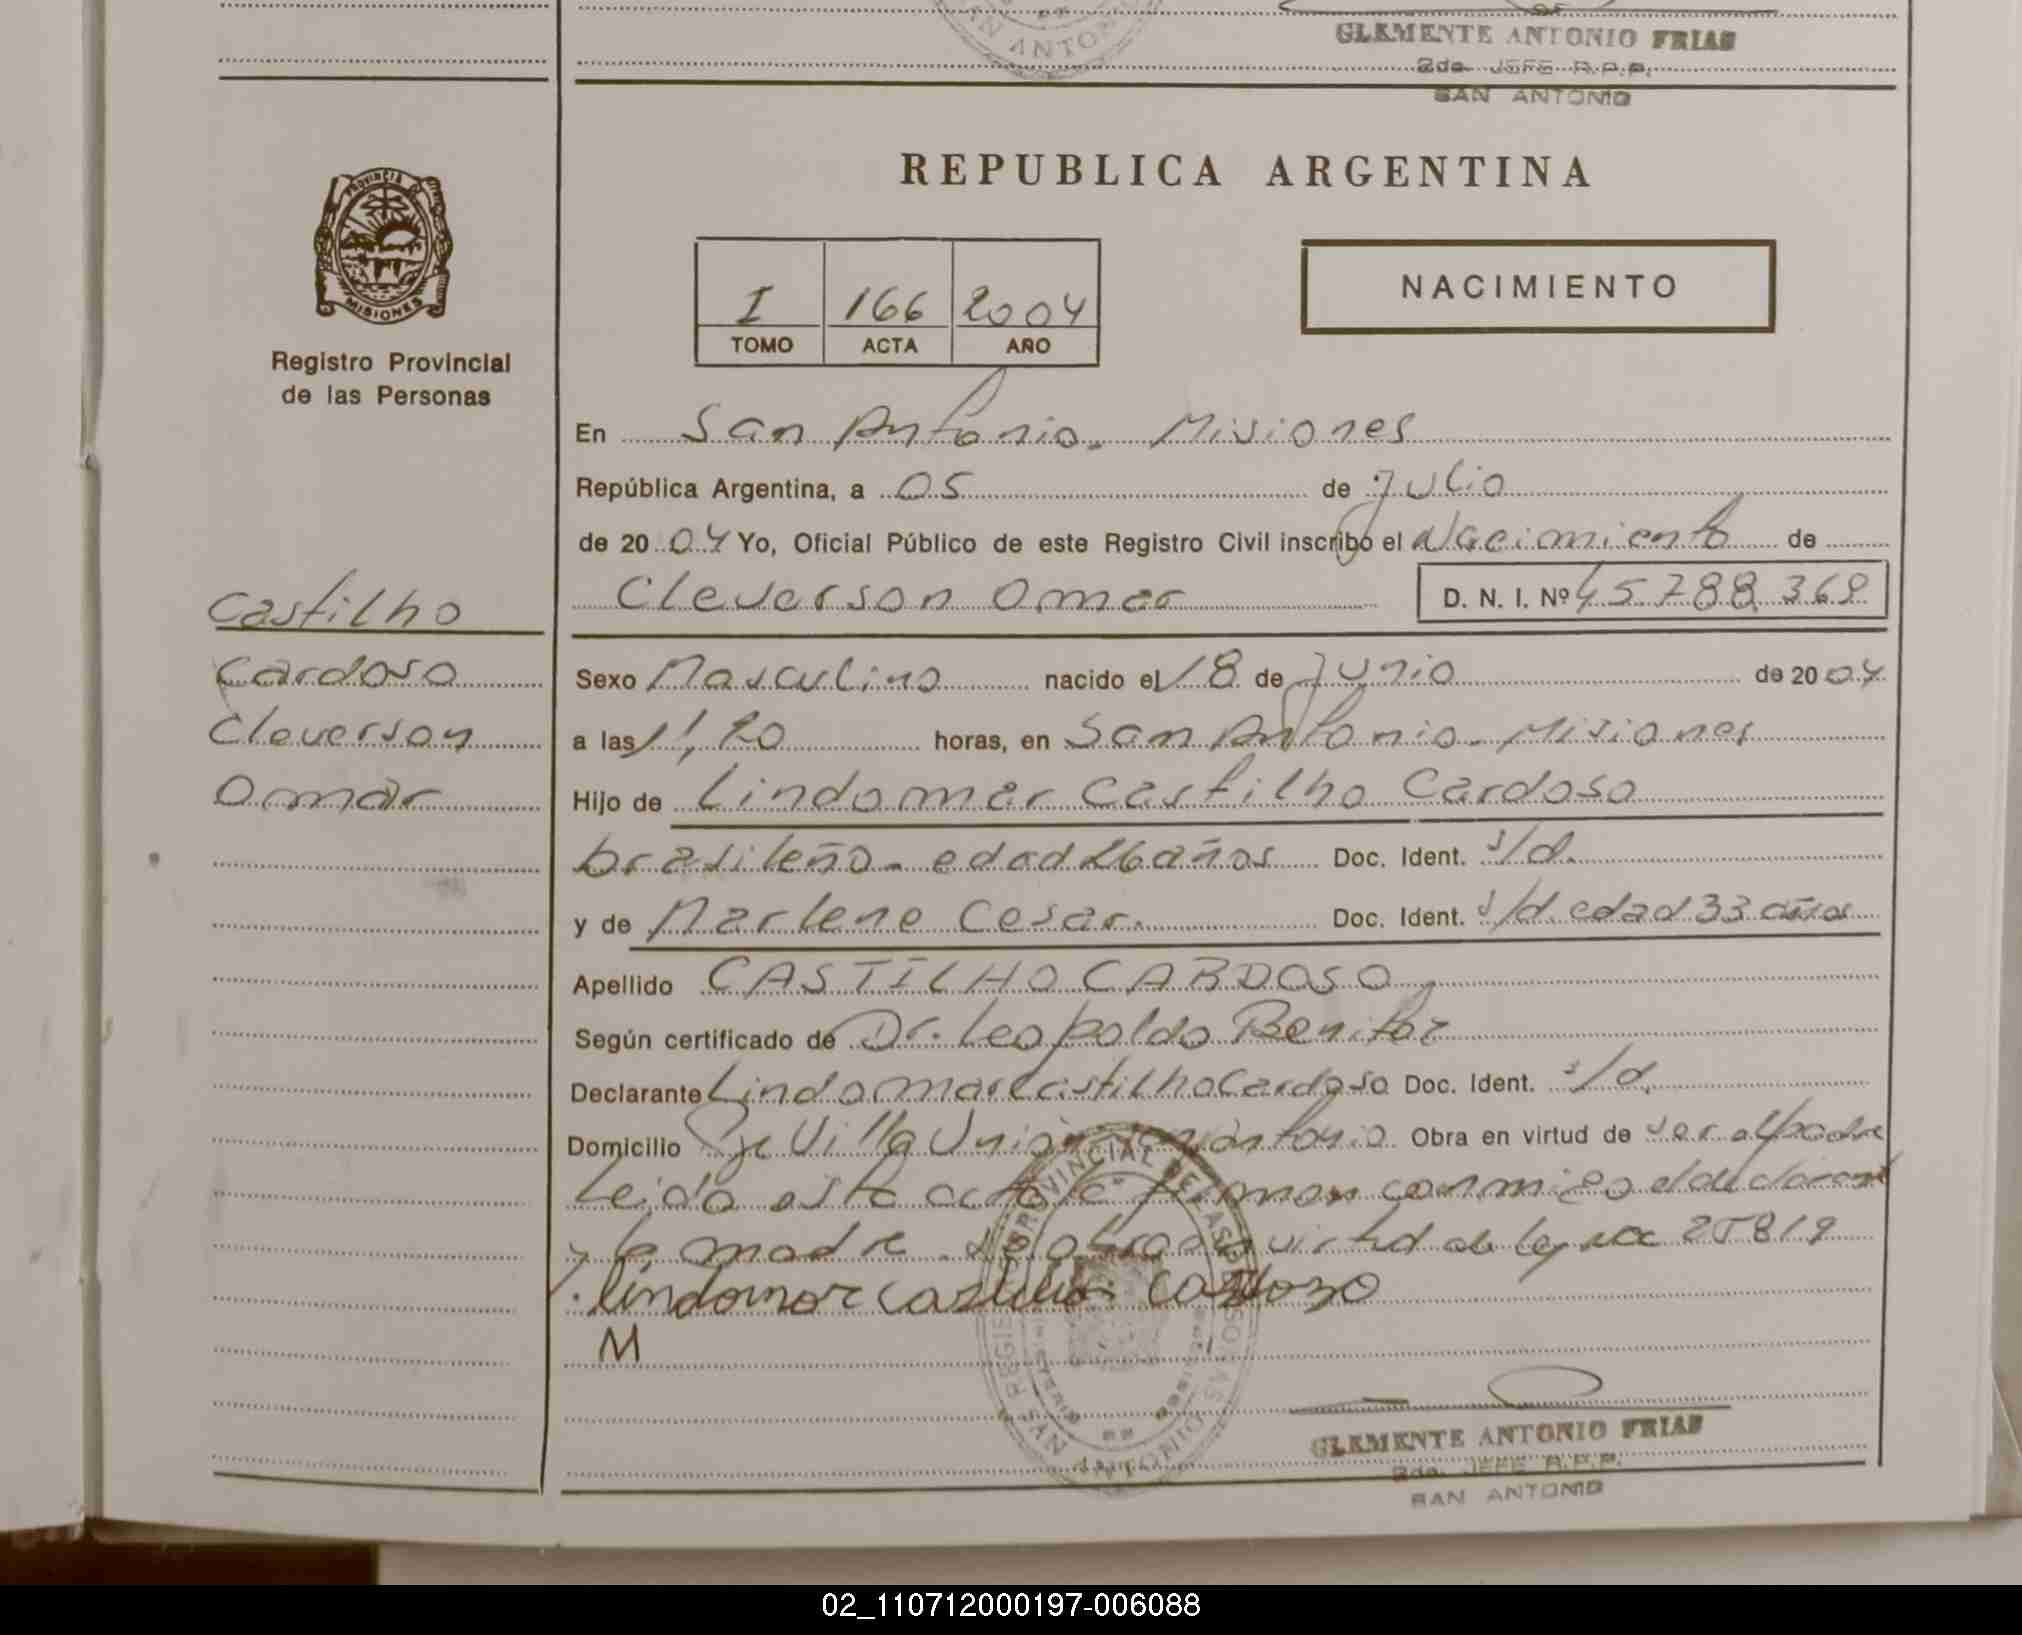 SAN ANTONIO
CLEMENTE ANTONIO FRIAS
2do. JEFE R.P.P.
SAN ANTONIO
REPUBLICA ARGENTINA
PROVINCIA
MISIONES
Registro Provincial
de las Personas
I 166 2004
TOMO ACTA AÑO
NACIMIENTO
En San Antonio. Misiones
República Argentina, a 05 de Julio
de 2004 Yo, Oficial Público de este Registro Civil inscribo el Nacimiento de
Cleverson Omar D. N. I. Nº 45.788.369
Castilho
Cardoso
Cleverson
Omar
Sexo Masculino nacido el 18 de Junio de 2004
a las 11,20 horas, en San Antonio. Misiones
Hijo de Lindomar Castilho Cardoso
brasileño. edad 26 años Doc. Ident. s/d.
y de Marlene Cesar. Doc. Ident. s/d. edad 33 años
Apellido CASTILHO CARDOSO
Según certificado de Dr. Leopoldo Benitez
Declarante Lindomar Castilho Cardoso Doc. Ident. s/d.
Domicilio Pje Villa Unión San Antonio Obra en virtud de ser el padre
Leida esta acta la firman conmigo el declarante
y la madre. Se labra en virtud de ley 25819
lindomar castilho Cardozo
M
CLEMENTE ANTONIO FRIAS
2do. JEFE R.P.P.
SAN ANTONIO
02_110712000197-006088